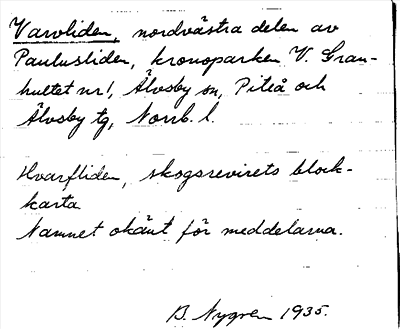 Varvliden, nordvästra delen av
Paulusliden, kronoparken V. Gran-
hultet nr 1, Älvsby sn, Piteå och
Älvsby tg, Norrb. l.
Hvarfliden, skogsrevirets block-
karta
Namnet okänt för meddelarna.
B. Nygren 1935.